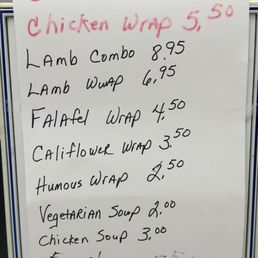 Chicken Wrap 5.50
Lamb Combo 8.95
Lamb Wrap 6.95
Falafel Wrap 4.50
Califlower Wrap 3.50
Humous Wrap 2.50
Vegetarian Soup 2.00
Chicken Soup 3.00